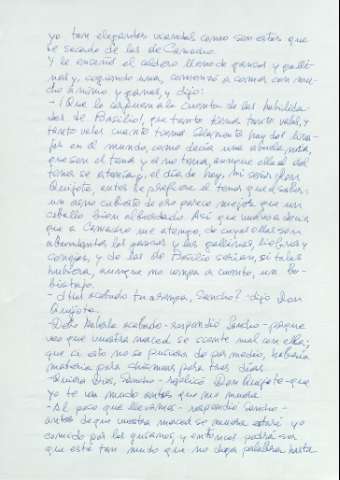 yo tan elegantes viandas como son estas que
he sacado de las de Camacho.
Y le enseñó el caldero lleno de gansos y galli-
nas y, cogiendo una, comenzó a comer con mu-
cho ánimo y ganas, y dijo:
- ¡Que lo expuen a la cuenta de las habilida-
des de Basilio!, que tanto tienes tanto vales, y
tanto vales cuanto tienes. Solamente hay dos lina-
jes en el mundo, como decía una abuela mía,
que son el tener y el no tener, aunque ella al del
tener se atenía; y el día de hoy, mi señor Don
Quijote, antes se prefiere el tener que al saber:
un asno cubierto de oro parece mejor que un
caballo bien albardado. Así que vuelvo a decir
que a Camacho me atengo, de cuyas ollas son
abundantes los gansos y las gallinas, liebres y
conejos, y de las de Basilio serían, si tales
hubiera, aunque no venga a cuento, un be-
bistrajo.
- ¿Has acabado tu arenga, Sancho? - dijo Don
Quijote.
- Debo haberla acabado - respondió Sancho - porque
veo que vuestra merced se siente mal con ella;
que si esto no se pusiera de por medio, habría
materia para charlar para tres días.
- Quiera Dios, Sancho - replicó Don Quijote - que
yo te vea mudo antes que me muera.
- Al paso que llevamos - respondió Sancho -
antes de que vuestra merced se muera estaré yo
comido por los gusanos, y entonces podrá ser
que esté tan mudo que no diga palabra hasta